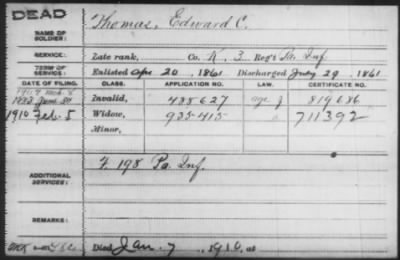 DEAD
NAME OF SOLDIER: Thomas, Edward C.
SERVICE: Late rank, Co. K, 3 Reg't Pa. Inf.
TERM OF SERVICE: Enlisted Apr 20, 1861 Discharged July 29, 1861
DATE OF FILING. CLASS. APPLICATION NO. LAW. CERTIFICATE NO.
Invalid, 488627 819686
1910 Feb. 5 Widow, 935415 711392
Minor,
ADDITIONAL SERVICES: F. 198 Pa. Inf.
REMARKS:
Died Jan. 7, 1910, at